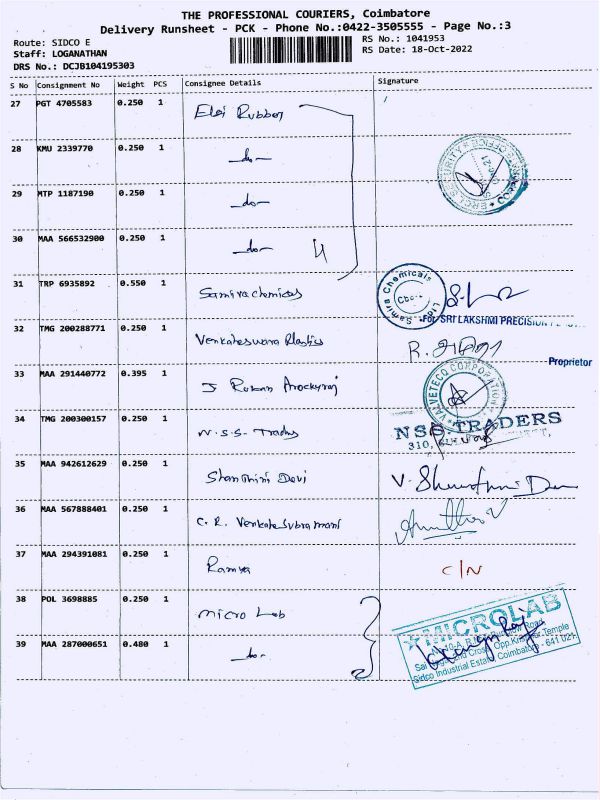 THE PROFESSIONAL COURIERS, Coimbatore
Delivery Runsheet - PCK - Phone No.:0422-3505555 - Page No.:3
Route: SIDCO E
RS No.: 1041953
Staff: LOGANATHAN
RS Date: 18-Oct-2022
DRS No.: DCJB104195303
S No Consignment No Weight PCS Consignee Details Signature
27 PGT 4705583 0.250 1
28 KMU 2339770 0.250 1 -do-
29 MTP 1187190 0.250 1 -do-
30 MAA 566532900 0.250 1 -do- 4
31 TRP 6935892 0.550 1 Samira chemicals
Samira Chemicals
For SRI LAKSHMI PRECISION
32 TMG 200288771 0.250 1 Venkateswara Plastics
Proprietor
33 MAA 291440772 0.395 1 J
VALVETECQ CORPORATION
34 TMG 200300157 0.250 1 N.S.S. Traders
NSS TRADERS
310,
35 MAA 942612629 0.250 1 Shanthini Devi
36 MAA 567888401 0.250 1 C.R. Venkatesubramani
37 MAA 294391081 0.250 1 Ramya C/N
38 POL 3698885 0.250 1 micro Lab
39 MAA 287000651 0.480 1 -do-
MICROLAB
Opp.Krishnar Temple
Sidco Industrial Estate, Coimbatore - 641 021